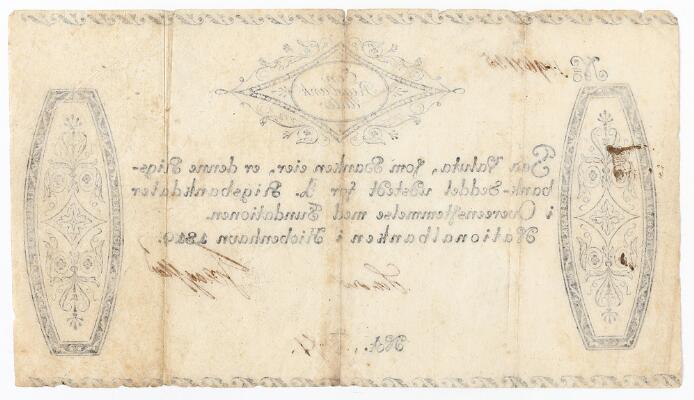 No
Een
Rigsbank
daler
Saa Valuta, som Banken eier, er denne Rigs-
bank-Seddel udstedt for 1. Rigsbankdaler
i Overensstemmelse med Fundationen.
Nationalbanken i Kiøbenhavn 1819.